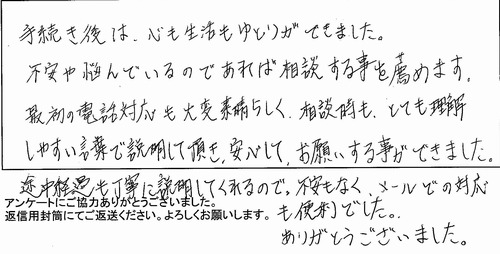 手続き後は、心も生活もゆとりができました。
不安や悩んでいるのであれば相談する事を薦めます。
最初の電話対応も大変素晴らしく、相談時も、とても理解
しやすい言葉で説明して頂き、安心して、お願いする事ができました。
途中経過も丁寧に説明してくれるので、不安もなく、メールでの対応
アンケートにご協力ありがとうございました。
返信用封筒にてご返送ください。よろしくお願いします。
も便利でした。
ありがとうございました。